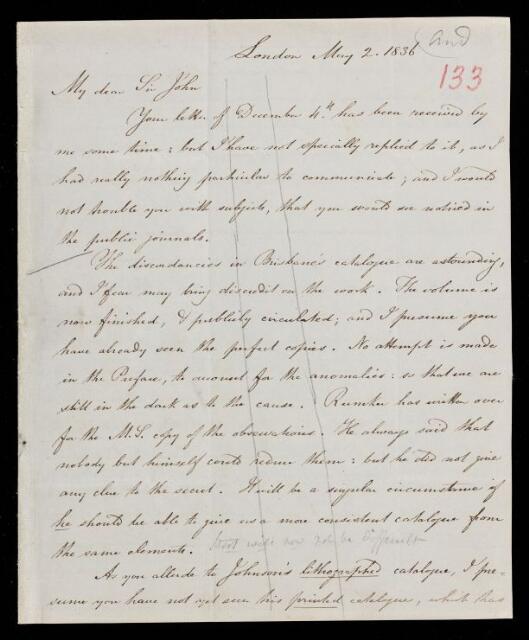 London May 2. 1836 (and
133
My dear Sir John
Your letter of December 4th has been received by
me some time: but I have not specially replied to it, as I
had really nothing particular to communicate; and I would
not trouble you with subjects, that you would see noticed in
the public journals.
The discordancies in Brisbane's catalogue are astounding,
and I fear may bring discredit on the work. The volume is
now finished, & publicly circulated; and I presume you
have already seen the perfect copies. No attempt is made
in the Preface, to account for the anomalies: so that we are
still in the dark as to the cause. Rumker has written over
for the M.S. copy of the observations. He always said that
nobody but himself could reduce them: but he did not give
any clue to the secret. It will be a singular circumstance if
he should be able to give us a more consistent catalogue from
the same elements. will now not be
As you allude to Johnson's lithographed catalogue, I pre-
sume you have not yet seen his printed catalogue, which has